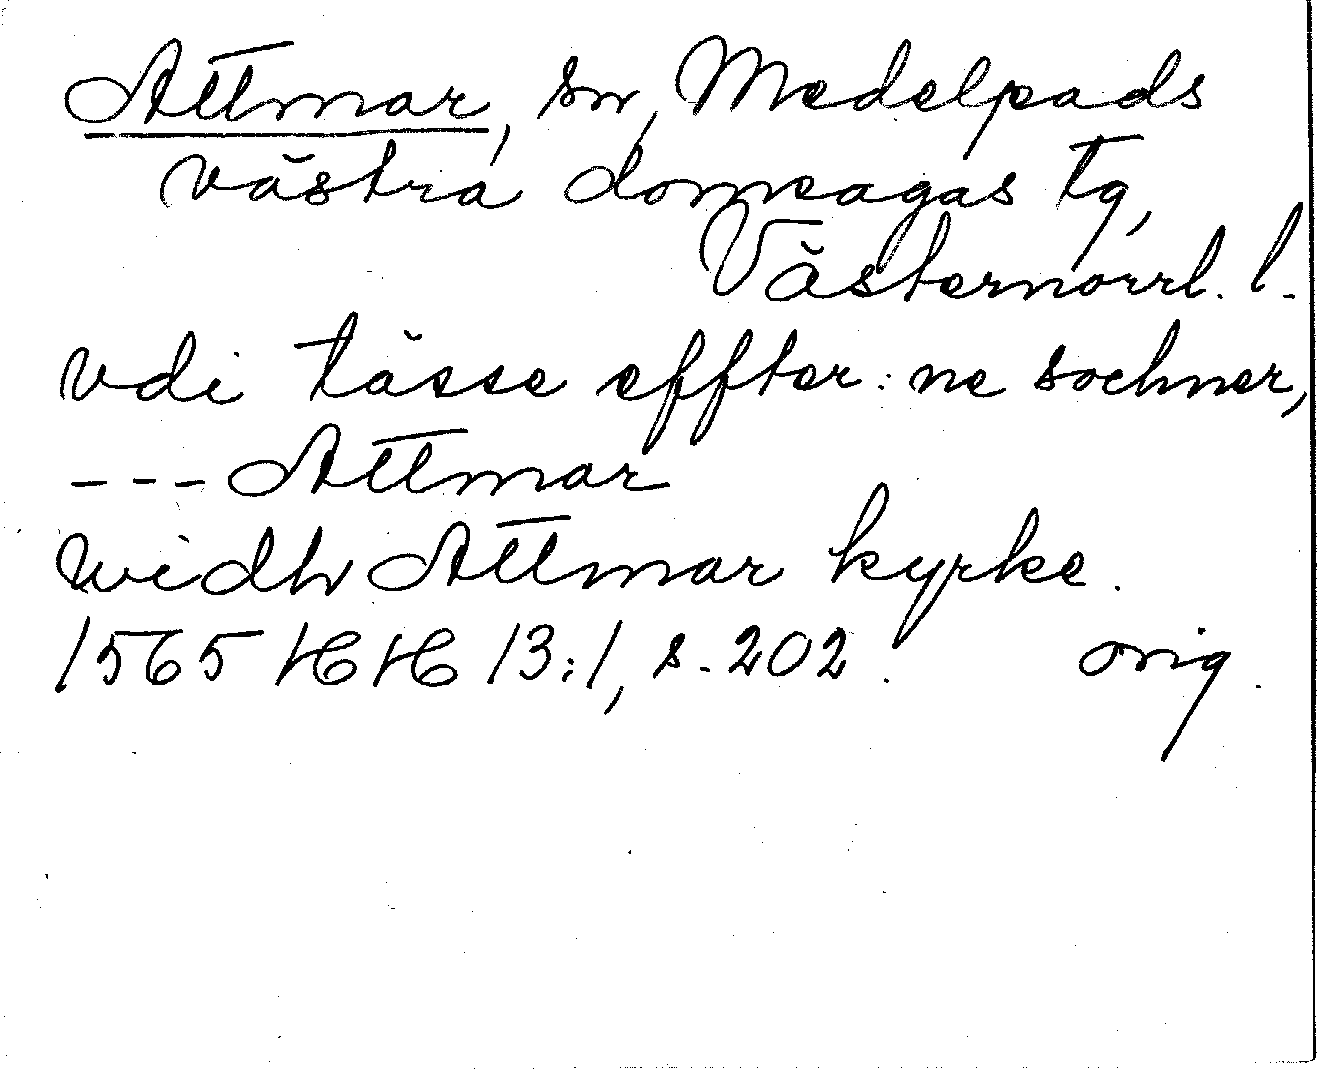 Attmar, sn, Medelpads
västra domsagas tg,
Västernorrl. l.
vdi tässe effter: ne sochner,
--- Attmar
widh Attmar kyrke.
1565 HH 13:1, s. 202. orig.